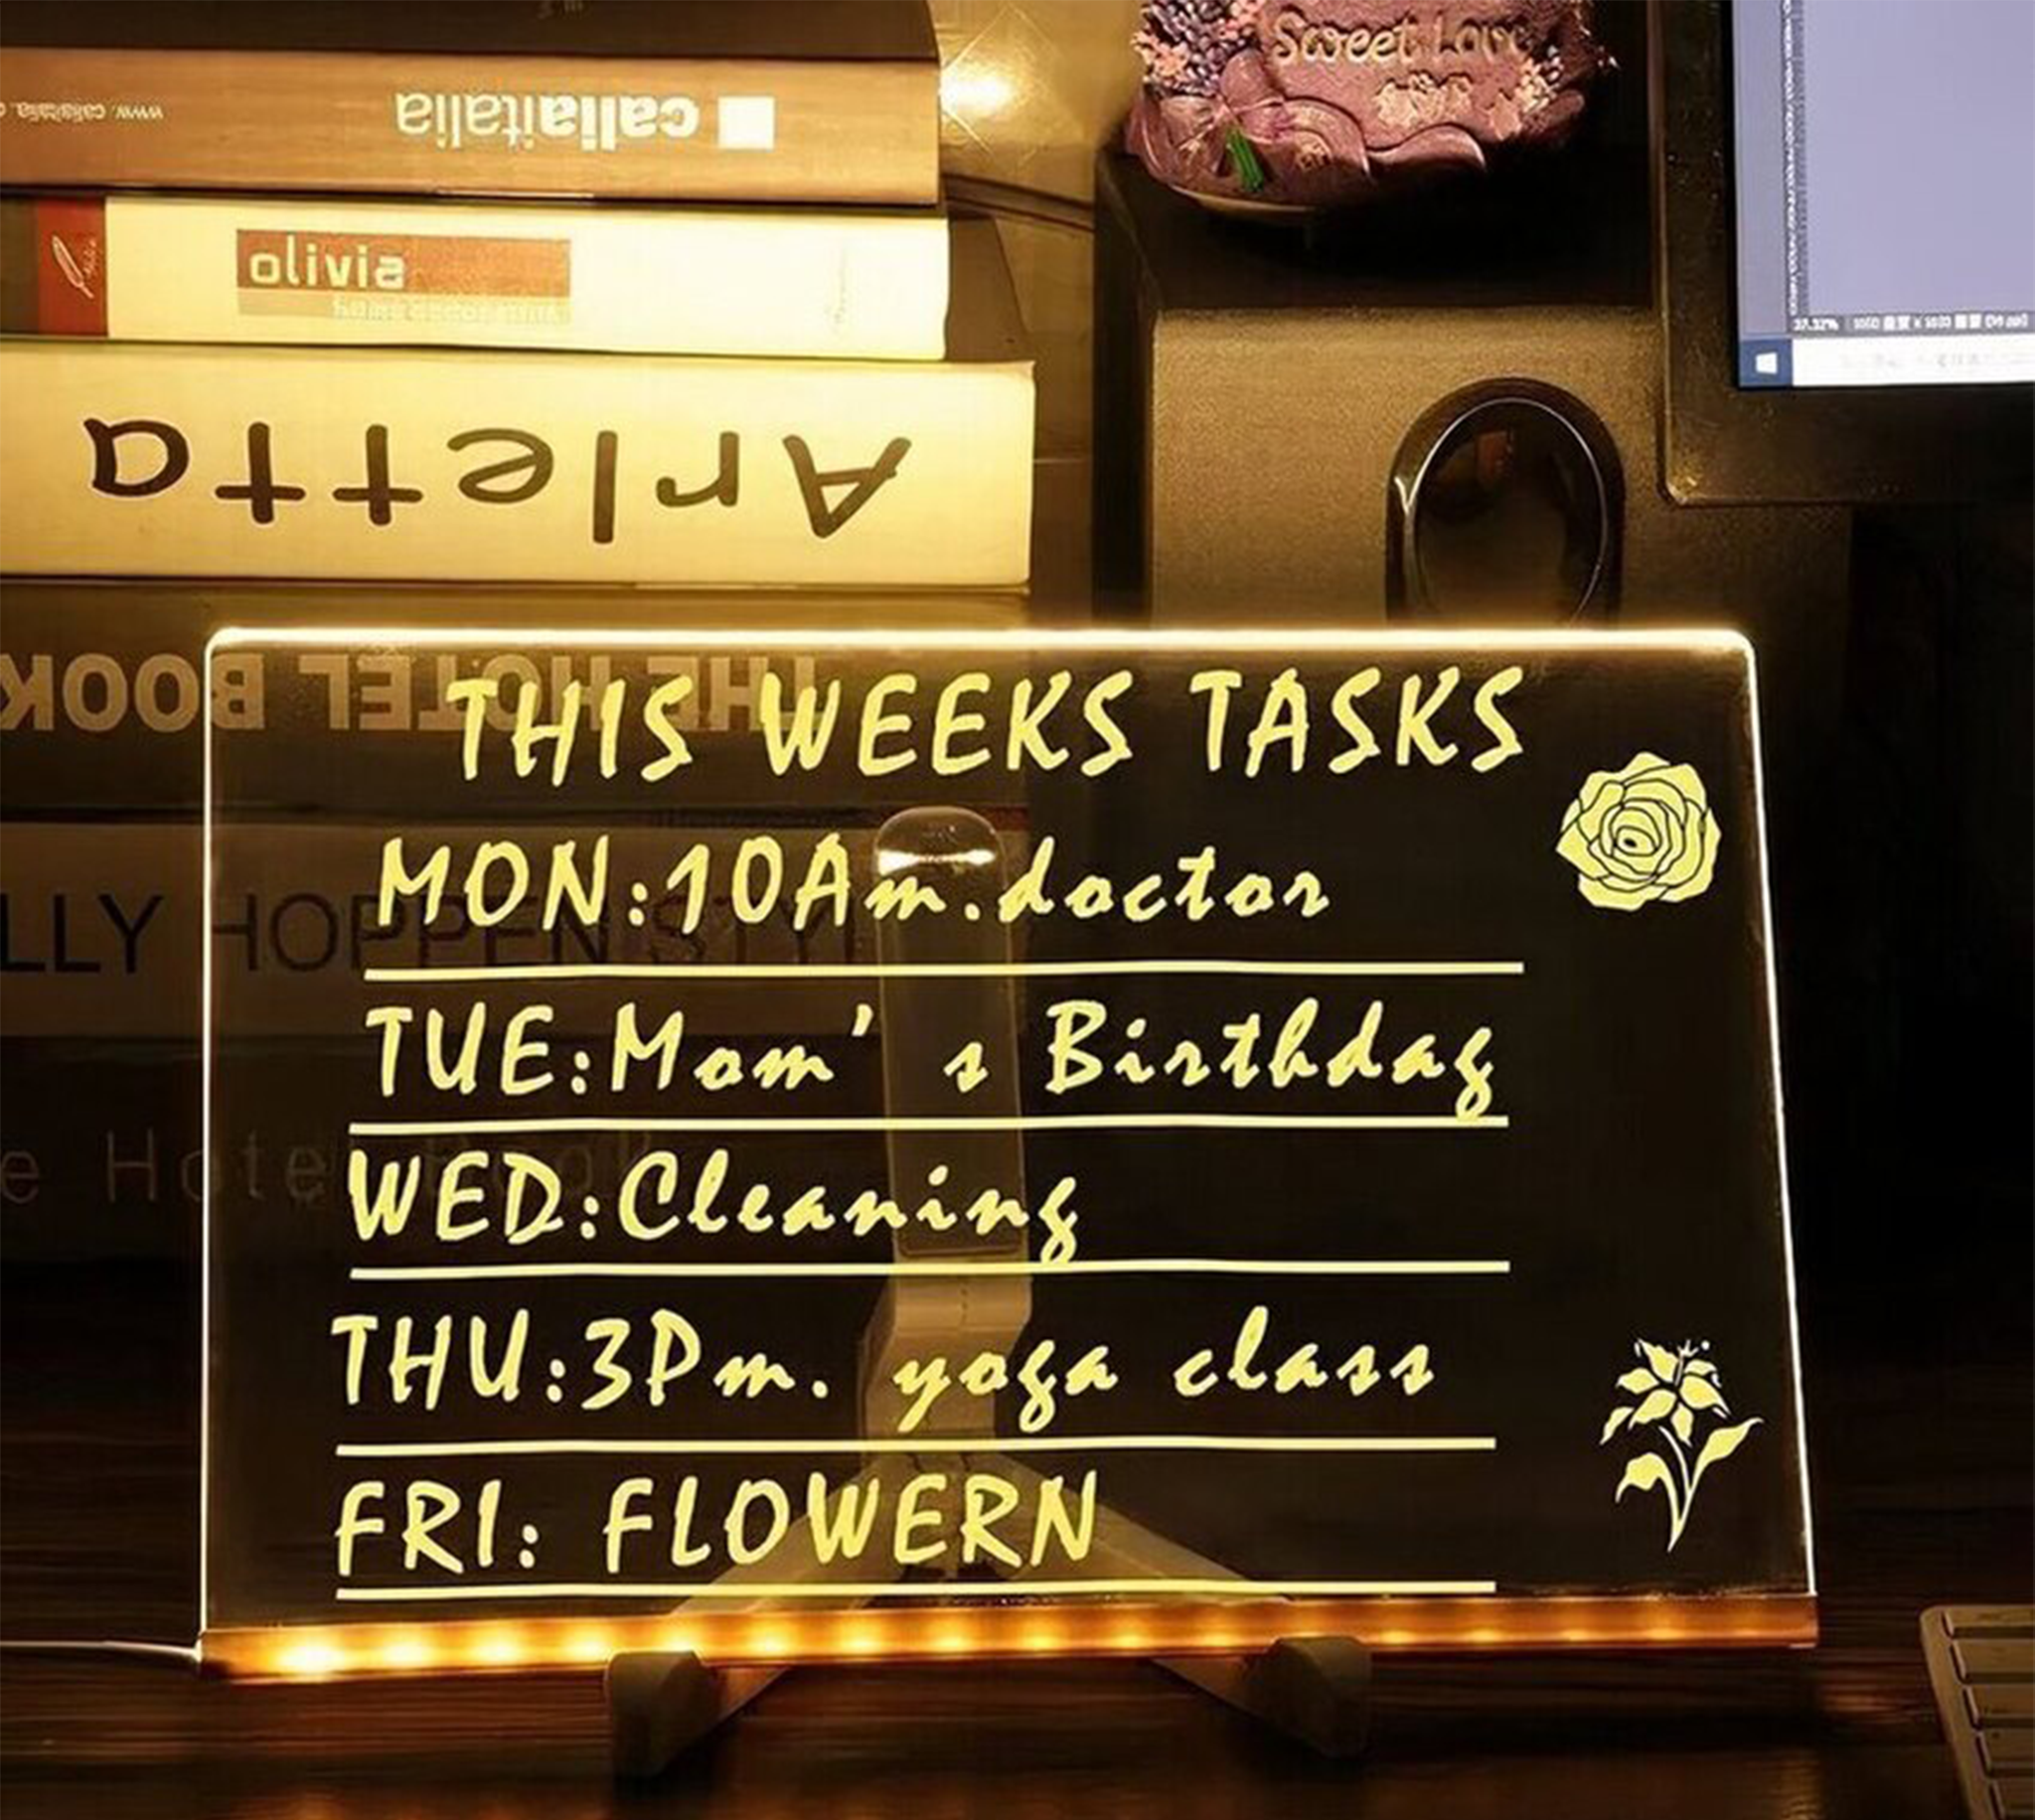 Sweet Love
caliaitalia
olivia
Arletta
THE HOTEL BOOK
THIS WEEKS TASKS
MON:10Am.doctor
LLY HOPPEN STYL
TUE:Mom' s Birthday
WED:Cleaning
e Hotel Book
THU:3Pm. yoga class
FRI: FLOWERN